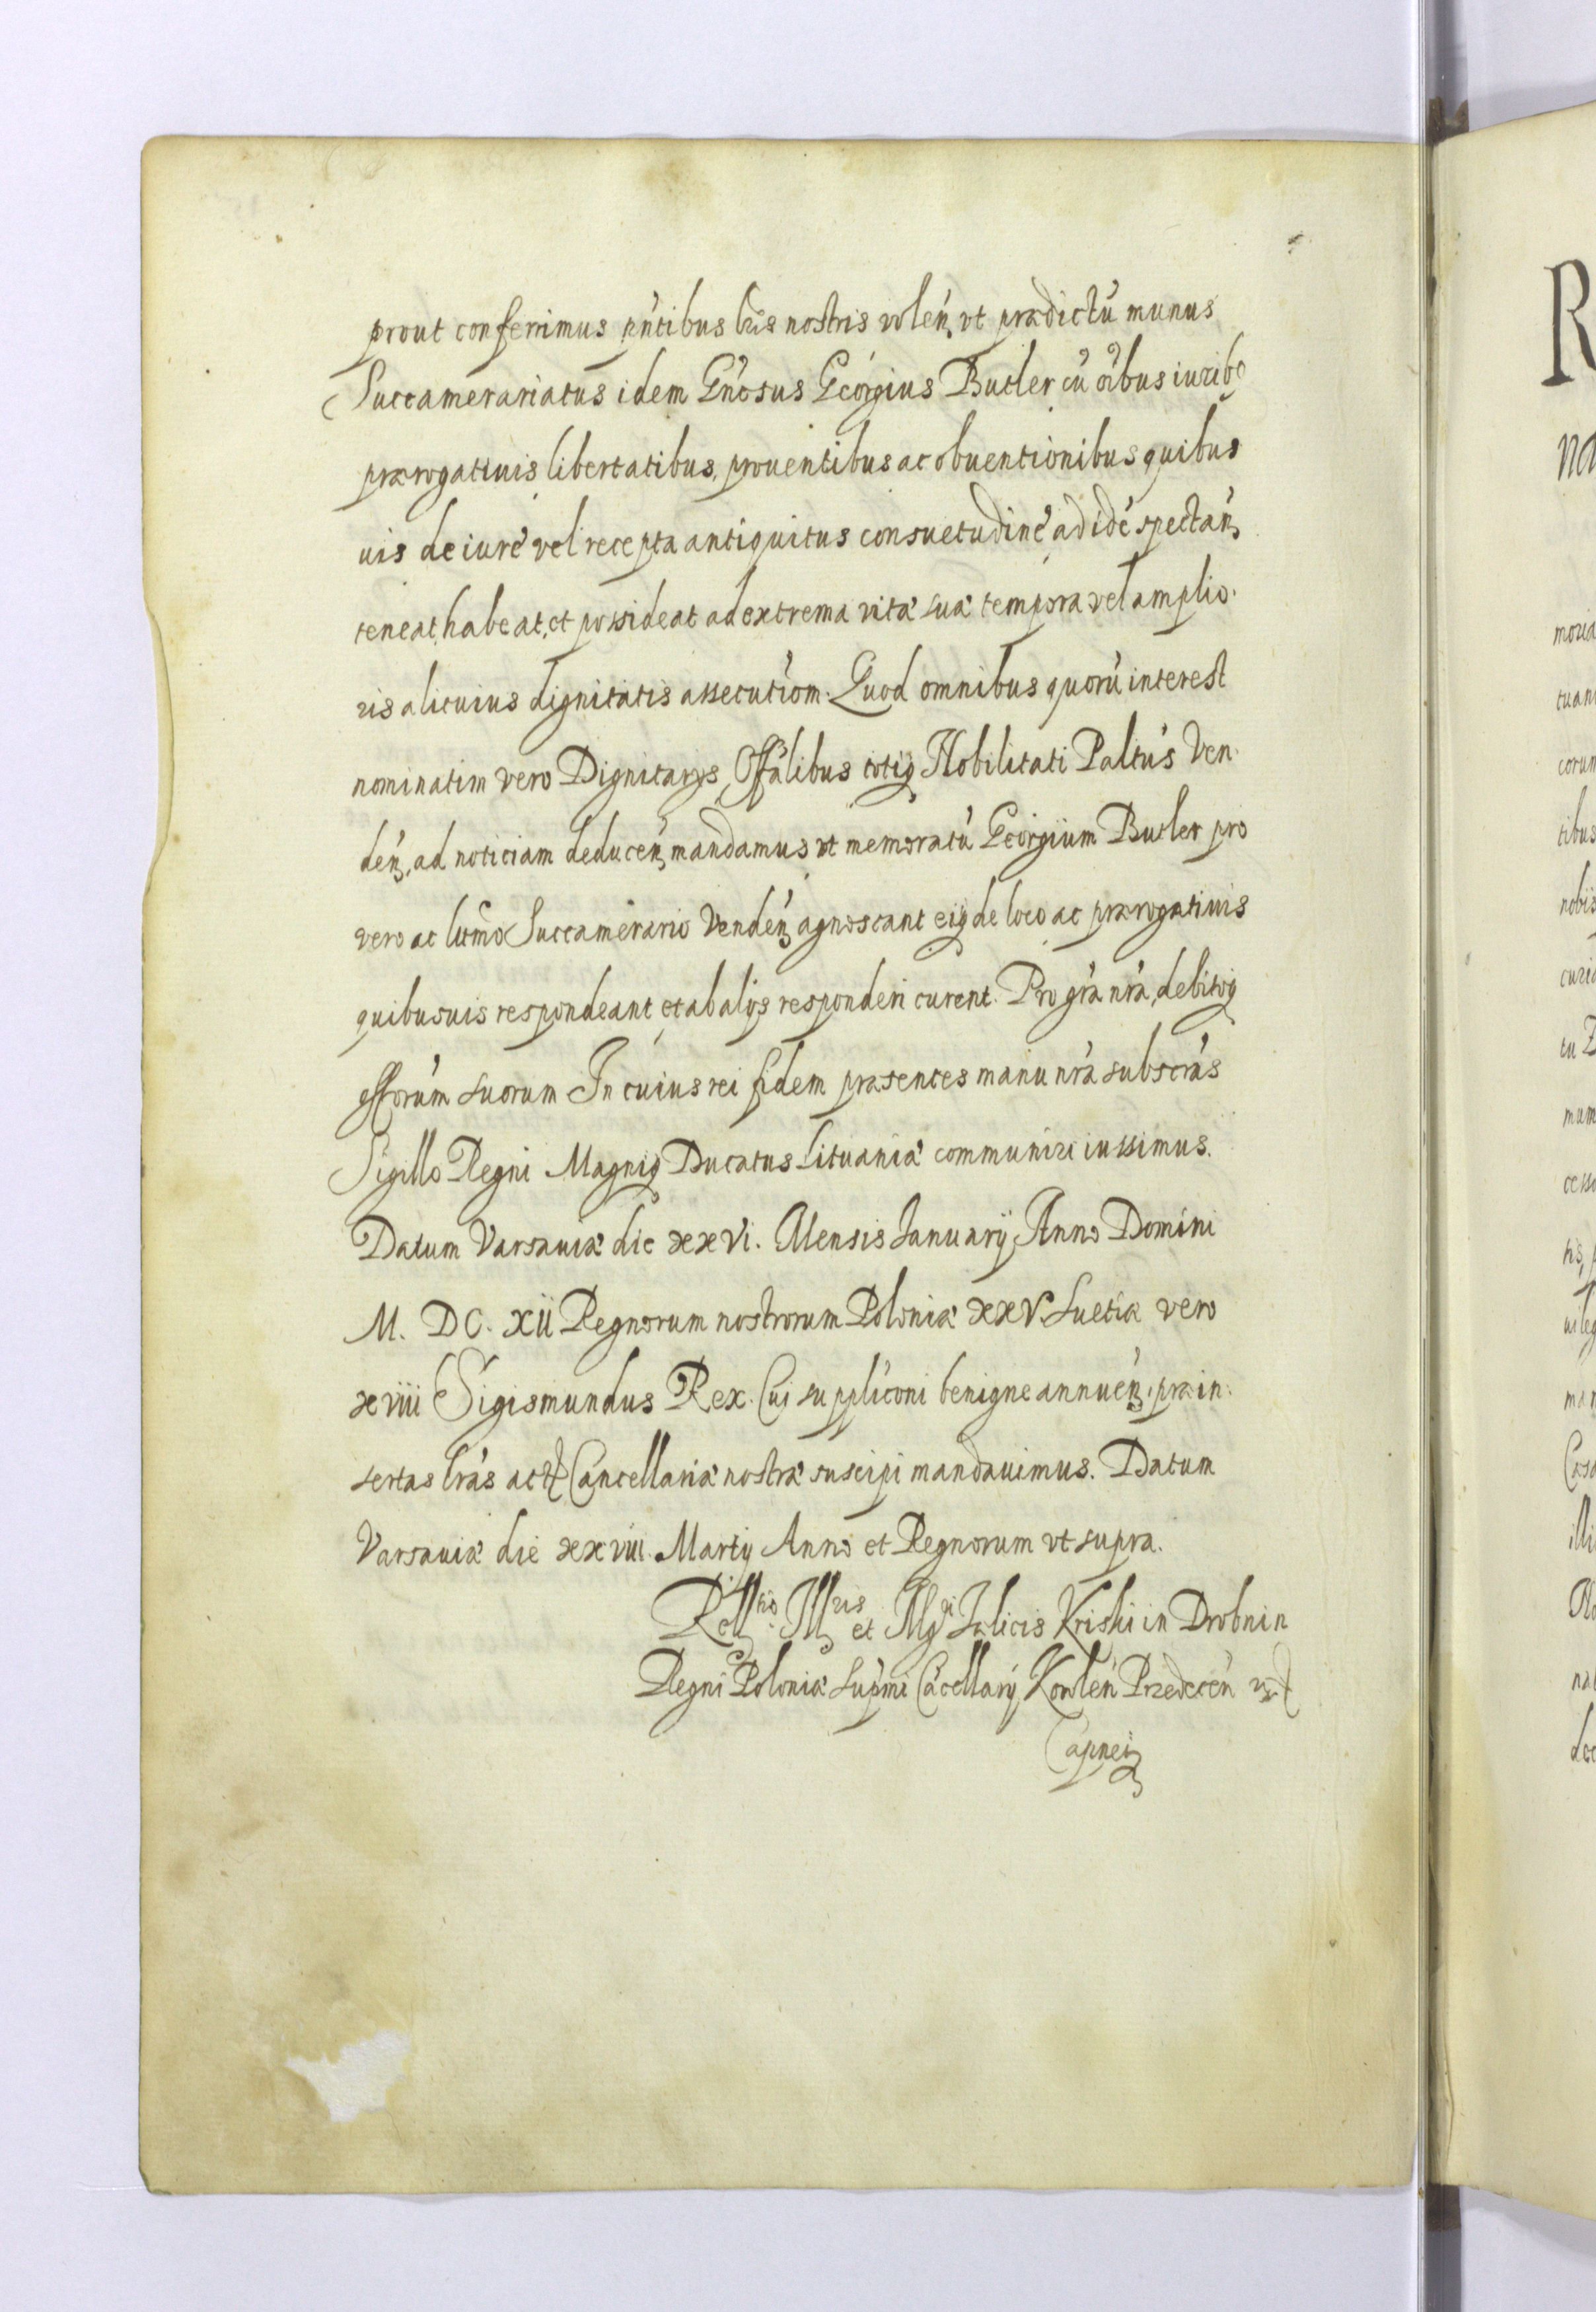 prout conferimus pn̄tibus lr̄is nostris volen̄ vt prædictū munus
Succamerariatus idem Gn̄osus Georgius Butler cū oībus iurib9
prærogatiuis libertatibus, prouentibus ac obuentionibus quibus
uis de iure vel recepta antiquitus consuetudine ad idē spectan̄
teneat, habeat, et possideat ad extrema vitæ suæ tempora vel amplio-
ris alicuius dignitatis assecutiom. Quod omnibus quorū interest
nominatim vero Dignitarijs, Offālibus totiq Nobilitati Paltūs Ven-
den̄, ad noticiam deducen̄ mandamus vt memoratū Georgiium Butler pro
vero ac ltīmo Succamerario Venden̄ agnoscant eiq de loco ac prærogatiuis
quibusuis respondeant et ab alijs responderi curent. Pro grā nrā, debitoq
offorūm suorum In cuius rei fidem præsentes manu nrā subscrās
Sigillo Regni Magniq Ducatus Lituaniæ communiri iussimus.
Datum Varsauiæ die xxvi. Mensis Ianuarij Anno Domini
M. DC. xii Regnorum nostrorum Poloniæ xxv. Suetiæ vero
xviii Sigismundus Rex. Cui suppliconi benigne annuen̄, præin-
sertas lrās actis Cancellariæ nostræ suscipi mandauimus. Datum
Varsauiæ die xxviii. Martij Anno et Regnorum vt supra.
Rell tio Ill ris et Mg ci Fælicis Kriski in Drobnin
Regni Poloniæ Supmi Cācellarij Kowlen̄ Przedecen̄
Capnei